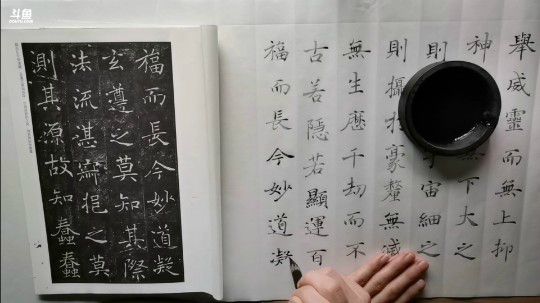 斗鱼
DOUYU.COM
舉威靈而無上抑
神無下大之
則宙細之
則攝於豪釐無滅
無生歷千劫而不
古若隱若顯運百
福而長今妙道凝
福而長今妙道凝
玄遵之莫知其際
法流湛寂挹之莫
測其源故知蠢蠢